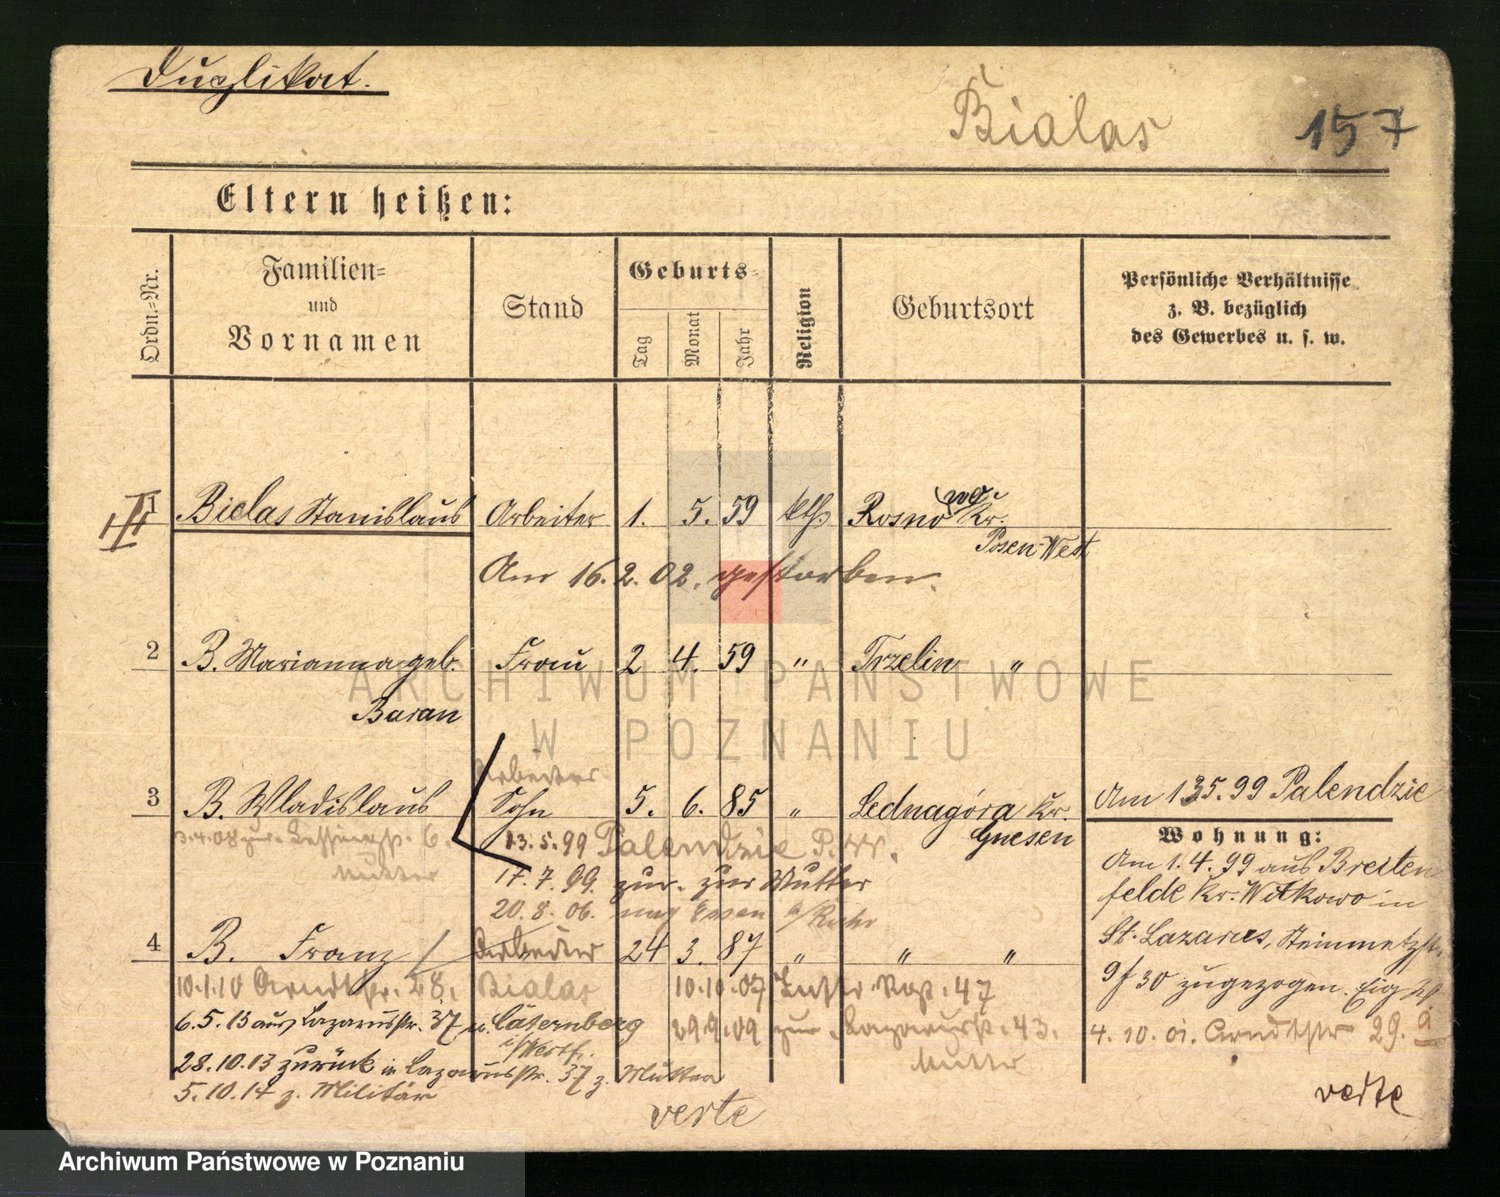 Duplikat.
Bialas
157
Eltern heißen:
Ordn.-Nr.
Familien-
und
Vornamen
Stand
Geburts-
Tag
Monat
Jahr
Religion
Geburtsort
Persönliche Verhältnisse
z. B. bezüglich
des Gewerbes u. s. w.
1 Bielas Stanislaus Arbeiter 1. 5. 59 kth Rosnowo Kr.
Posen-West
Am 16.2.02. gestorben.
2 B. Marianna geb. Frau 2 4. 59 " Trzelin "
Baran
Arbeiter
3 B. Wladislaus Sohn 5. 6. 85 " Lednagóra Kr.
Gnesen
Am 13.5.99 Palendzie
3.4.08 zur. 6.
Mutter
13.5.99 Palendzie P.W.
17.7.99. zur. zur Mutter
20.8.06. nach Essen a/Ruhr
Wohnung:
Am 1.4.99 aus Breiten
felde Kr. Witkowo in
St. Lazarus, Steinmetzstr.
9 f 30 zugezogen.
4.10.01. Arndtstr 29.
4 B. Franz Arbeiter 24 3. 87 " " "
10.1.10 Arndtstr. 28. Bialas 10.10.07 47
6.5.13 aus Lazarusstr. 37 n. Caternberg 29.9.09 zur. Lazarusstr. 43.
i/Westf. Mutter
28.10.13 zurück in Lazarusstr. 37 z. Mutter
5.10.14 z. Militär
verte
verte
ARCHIWUM PAŃSTWOWE
W POZNANIU
Archiwum Państwowe w Poznaniu